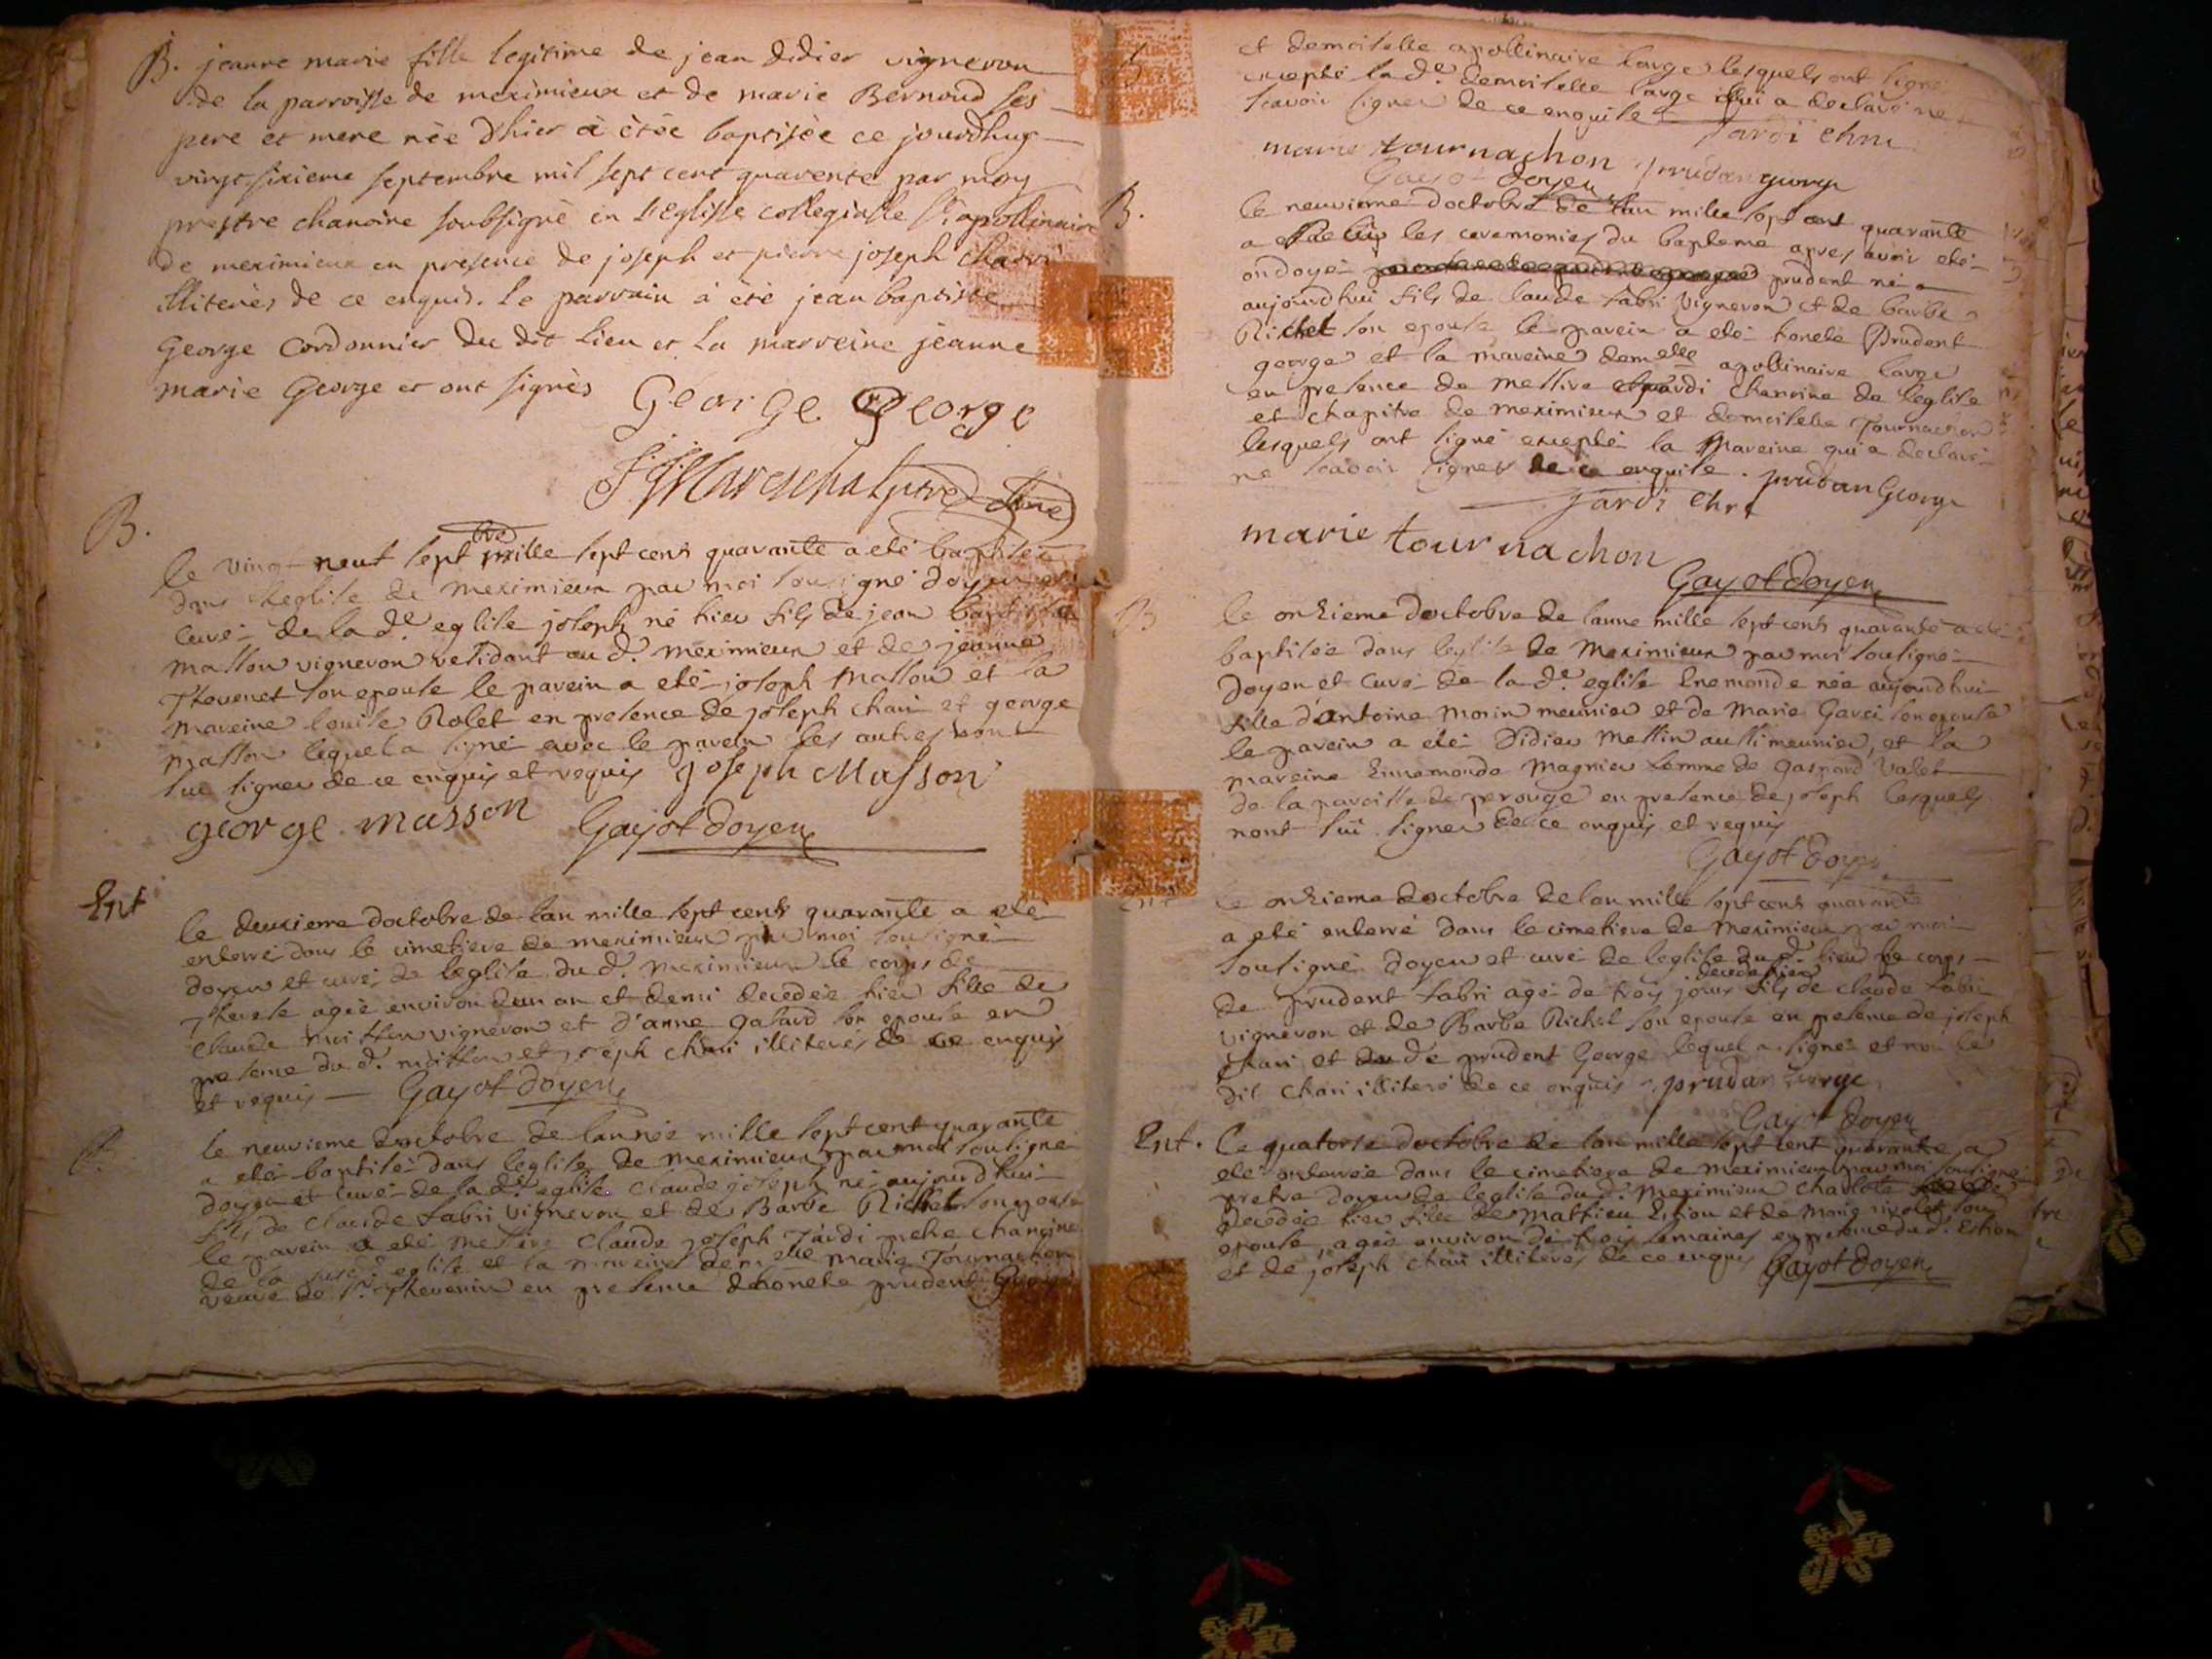 B. jeanne marie fille legitime de jean didier vigneron
de la parroisse de meximieux et de marie Bernoud ses
pere et mere née d'hier à étée baptisée ce jourdhuy
vingt sixieme septembre mil sept cent quarente par moy
prestre chanoine soubsigné en l'Eglisse collegialle St apollinaire
de meximieux en presence de joseph et pierre joseph charvi
illiterés de ce enquis. le parrain à été jean baptiste
George Cordonnier du dit lieu et la marreine jeanne
marie George et ont signés George George
J Mareschal ptre chne
B.
le vingt neuf sept bre mille sept cents quarante a eté baptisé
dans leglise de meximieux par moi sousigné doyen et
curé de la de eglise joseph né hier fils de jean baptiste
masson vigneron residant au d. meximieux et de jeanne
Thevenet son epouse le parein a eté joseph masson et la
mareine louise Rolet en presence de joseph chari et george
masson lequel a signé avec le parein les autres nont
sue signer de ce enquis et requis joseph Masson
george masson Gayot doyen
Ent
le deuxieme doctobre de lan mille sept cents quarante a eté
enterré dans le cimetiere de meximieux par moi sousigné
doyen et curé de leglise du d. meximieux le corps de
Therese agée environ dun an et demi decedée hier fille de
claude moitton vigneron et d'anne galand son epouse en
presence du d. moitton et joseph chari illiterés de ce enquis
et requis — Gayot doyen
B.
le neuvieme doctobre de lannée mille sept cent quarante
a eté baptisé dans leglise de meximieux par moi sousigné
doyen et curé de la de eglise claude joseph né aujourdhui
fils de claude fabri vigneron et de Barbe Richet son epouse
le parein a eté messire claude joseph jardi pretre chanoine
de la susd. eglise et la mareine demelle marie Tournachon
veuve de Sr thevenin en presence dhonete prudent George
et demoiselle apollinaire large lesquels ont signé
excepté la de demoiselle large qui a declaré ne
scavoir signer de ce enquise jardi chne
marie tournachon prudan george
Gayot doyen
B.
le neuvieme doctobre de lan mille sept cent quarante
a les ceremonies du bapteme apres avoir eté
ondoyé prudent né
aujourdhui fils de claude fabri vigneron et de barbe
Richet son epouse le parein a eté honete Prudent
george et la mareine demelle apollinaire large
en presence de messire jardi chanoine de leglise
et chapitre de meximieux et demoiselle Tournachon
lesquels ont signé excepté la mareine qui a declaré
ne scavoir signer de ce enquise. prudan George
jardi chne
marie tournachon
Gayot doyen
B
le onzieme doctobre de lanne mille sept cents quarante a eté
baptisée dans leglise de meximieux par moi sousigné
doyen et curé de la de eglise Enemonde née aujourdhui
fille d'antoine morin meunier et de marie Garci son epouse
le parein a eté didier mettin aussi meunier, et la
mareine Ennemonde magnier femme de gaspard valet
de la paroisse de perouge en presence de joseph lesquels
nont sue signer de ce enquis et requis
Gayot doyen
Ent
le onzieme doctobre de lan mille sept cents quarante
a eté enterré dans le cimetiere de meximieux par moi
sousigné doyen et curé de leglise du d. lieu le corps
decede hier
de prudent fabri agé de trois jours fils de claude fabri
vigneron et de Barbe Richet son epouse en presence de joseph
chari et de prudent George lequel a signé et non le
dit chari illiteré de ce enquis. prudan george
Gayot doyen
Ent. Le quatorse doctobre de lan mille sept cent quarante a
eté enterrée dans le cimetiere de meximieux par moi sousigné
pretre doyen de leglise du d. meximieux charlote
decedée hier fille de mathieu Estion et de marie rivolet son
epouse agée environ de trois semaines en presence du d. Estion
et de joseph chari illiterés de ce enquis Gayot doyen